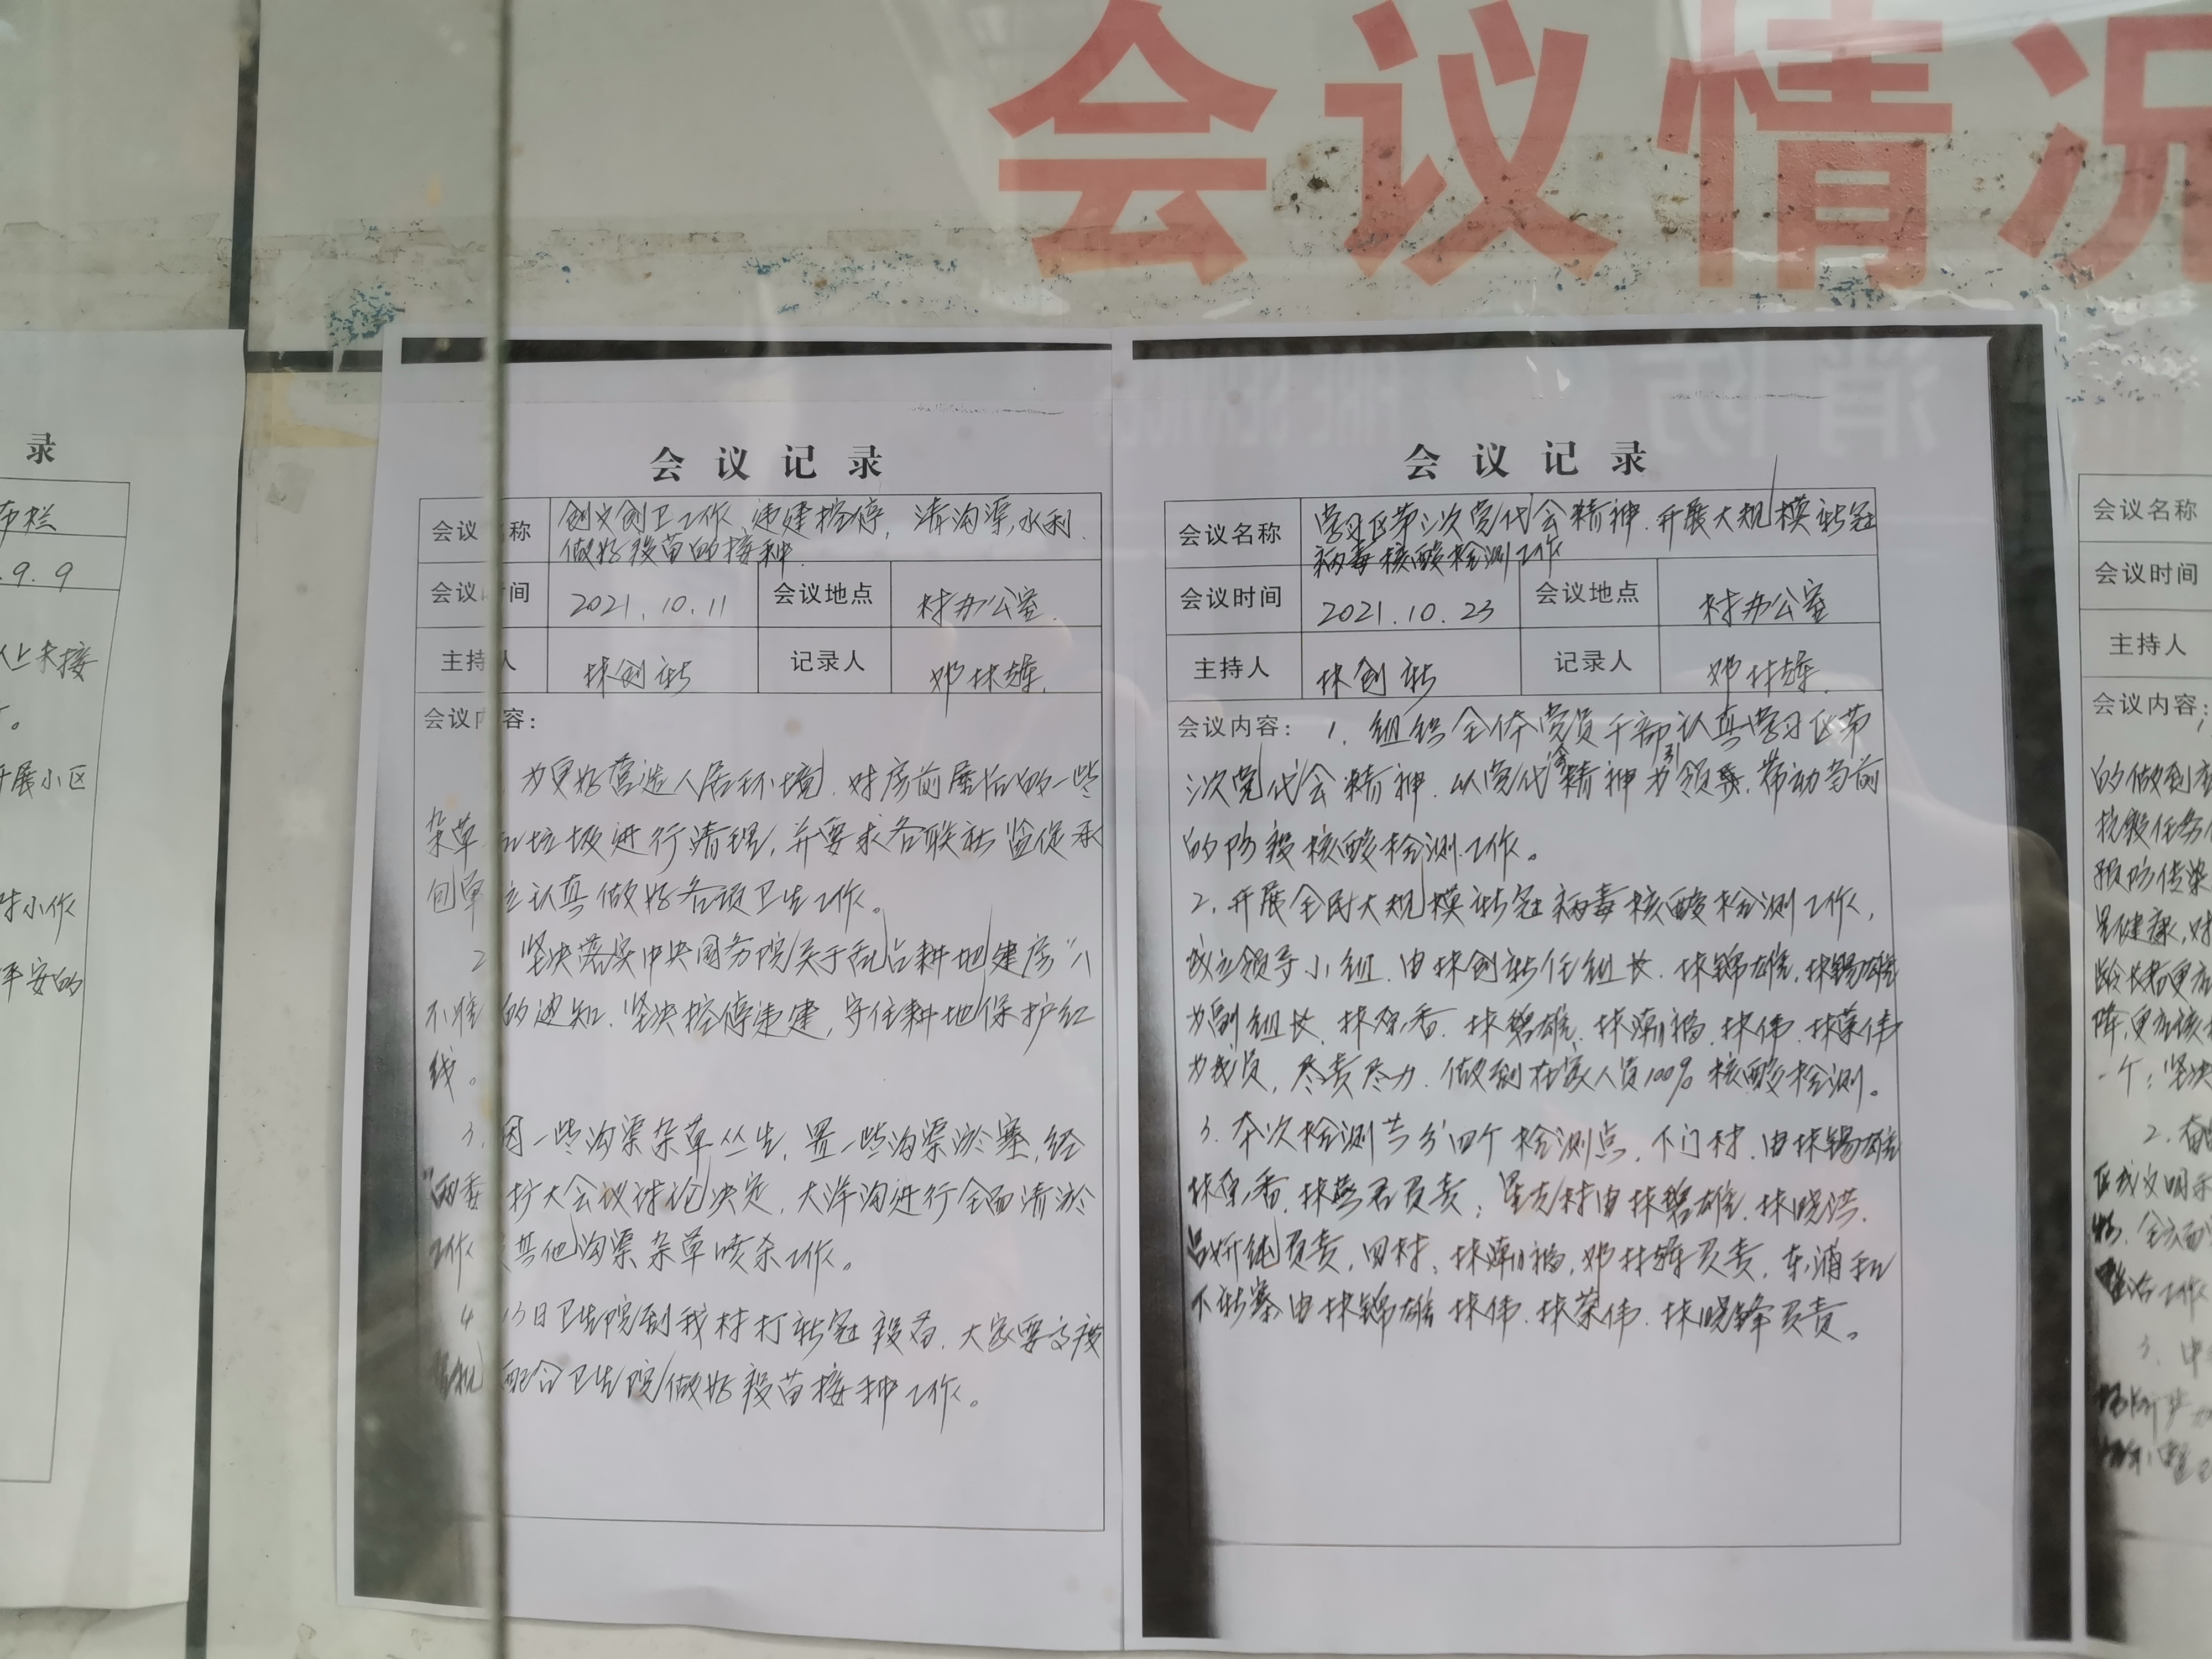 会议情况
录
9.9
开展小区
平安的
会议记录
会议名称 创文创卫工作、违建控停,清沟渠,水利.
做好疫苗的接种.
会议时间 2021.10.11 会议地点 村办公室.
主持人 林创新 记录人 邓林辉.
会议内容:
为更好营造人居环境,对房前屋后的一些
杂草和垃圾进行清理,并要求各联社监促承
包单位认真做好各项卫生工作。
2 坚决落实中央国务院关于乱占耕地建房“八
不准的通知.坚决控停违建,守住耕地保护红
线。
3.因一些沟渠杂草丛生,置一些沟渠淤塞,经
“两委扩大会议讨论决定,大洋沟进行全面清淤
工作 其他沟渠杂草喷杀工作。
4 13日卫生院到我村打新冠疫苗.大家要
配合卫生院做好疫苗接种工作。
会议记录
会议名称 学习区第三次党代会精神.开展大规模新冠
病毒核酸检测工作
会议时间 2021.10.23 会议地点 村办公室
主持人 林创新 记录人 邓林辉.
会议内容: 1.组织全体党员干部认真学习区第
三次党代会精神.以党代会精神为引领,带动当前
的防疫核酸检测工作。
2.开展全民大规模新冠病毒核酸检测工作,
成立领导小组.由林创新任组长.林锦雄,林锡雄
为副组长.林 香.林碧雄.林潮福.林伟.林荣伟
为成员,尽责尽力.做到在家人员100%核酸检测。
3.本次检测共分四个检测点.下门村.由林锡雄
林 香.林 君负责;里 村由林碧雄.林晓洪.
妍纯负责,田村:林潮福,邓林辉负责,东浦和
下新寨由林锦雄 林伟.林荣伟.林晓锋负责。
会议名称
会议时间
主持人
会议内容:
抗疫任务
防传染
2.
3.中